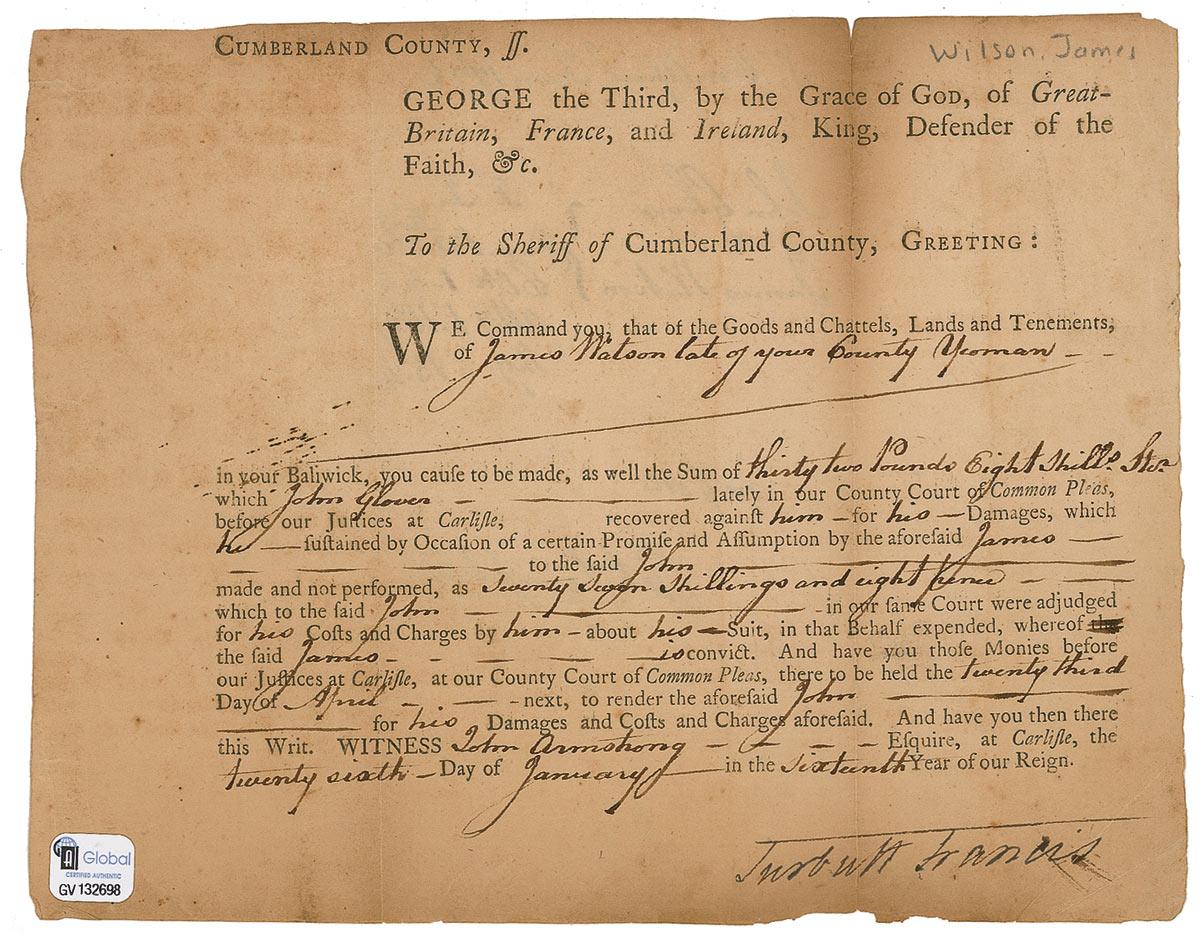 CUMBERLAND COUNTY, ſſ.
Wilson, James
GEORGE the Third, by the Grace of GOD, of Great-
Britain, France, and Ireland, King, Defender of the
Faith, &c.
To the Sheriff of Cumberland County, GREETING:
WE Command you, that of the Goods and Chattels, Lands and Tenements,
of James Watson late of your County Yeoman
in your Baliwick, you cauſe to be made, as well the Sum of thirty two Pounds Eight Shills. Ster
which John Glover lately in our County Court of Common Pleas,
before our Juſtices at Carliſle, recovered againſt him for his Damages, which
he ſuſtained by Occaſion of a certain Promiſe and Aſſumption by the aforeſaid James
to the ſaid John
made and not performed, as Seventy Seven Shillings and eight pence
which to the ſaid John in our ſame Court were adjudged
for his Coſts and Charges by him about his Suit, in that Behalf expended, whereof
the ſaid James is convict. And have you thoſe Monies before
our Juſtices at Carliſle, at our County Court of Common Pleas, there to be held the twenty third
Day of April next, to render the aforeſaid John
for his Damages and Coſts and Charges aforeſaid. And have you then there
this Writ. WITNESS John Armstrong Eſquire, at Carliſle, the
twenty sixth Day of January in the sixteenth Year of our Reign.
Turbutt Francis
Global
CERTIFIED AUTHENTIC
GV 132698